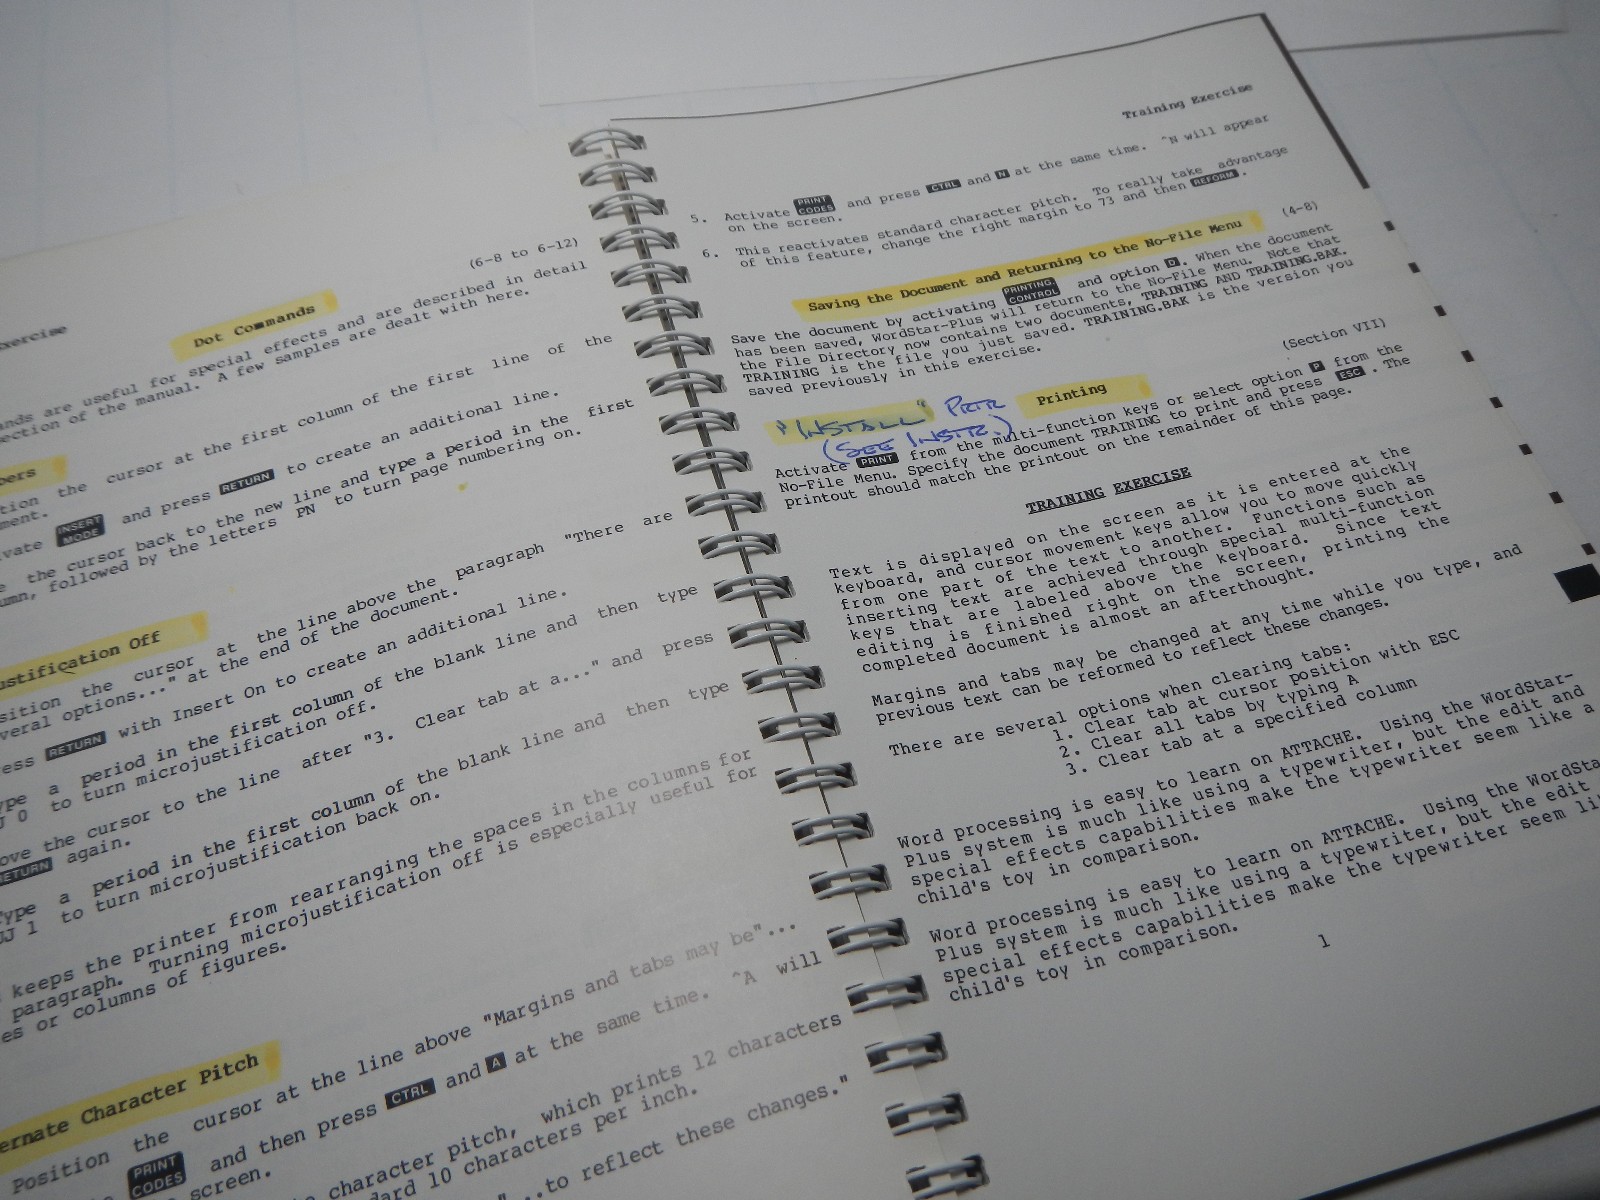 Exercise
Dot Commands
(6-8 to 6-12)
are useful for special effects and are described in detail
section of the manual. A few samples are dealt with here.
the cursor at the first column of the first line of the
and press RETURN to create an additional line.
INSERT MODE
the cursor back to the new line and type a period in the first
followed by the letters PN to turn page numbering on.
Off
the cursor at the line above the paragraph "There are
several options..." at the end of the document.
RETURN with Insert On to create an additional line.
a period in the first column of the blank line and then type
0 to turn microjustification off.
the cursor to the line after "3. Clear tab at a..." and press
RETURN again.
Type a period in the first column of the blank line and then type
1 to turn microjustification back on.
keeps the printer from rearranging the spaces in the columns for
paragraph. Turning microjustification off is especially useful for
or columns of figures.
Character Pitch
Position the cursor at the line above "Margins and tabs may be"...
PRINT CODES and then press CTRL and A at the same time. ^A will
screen.
character pitch, which prints 12 characters
10 characters per inch.
"...to reflect these changes."
Training Exercise
5. Activate PRINT CODES and press CTRL and N at the same time. ^N will appear
on the screen.
6. This reactivates standard character pitch. To really take advantage
of this feature, change the right margin to 73 and then REFORM.
Saving the Document and Returning to the No-File Menu
(4-8)
Save the document by activating PRINTING CONTROL and option D. When the document
has been saved, WordStar-Plus will return to the No-File Menu. Note that
the File Directory now contains two documents, TRAINING AND TRAINING.BAK.
TRAINING is the file you just saved. TRAINING.BAK is the version you
saved previously in this exercise.
Printing
(Section VII)
"INSTALL" PRTR
(SEE INSTR.)
Activate PRINT from the multi-function keys or select option P from the
No-File Menu. Specify the document TRAINING to print and press ESC. The
printout should match the printout on the remainder of this page.
TRAINING EXERCISE
Text is displayed on the screen as it is entered at the
keyboard, and cursor movement keys allow you to move quickly
from one part of the text to another. Functions such as
inserting text are achieved through special multi-function
keys that are labeled above the keyboard. Since text
editing is finished right on the screen, printing the
completed document is almost an afterthought.
Margins and tabs may be changed at any time while you type, and
previous text can be reformed to reflect these changes.
There are several options when clearing tabs:
1. Clear tab at cursor position with ESC
2. Clear all tabs by typing A
3. Clear tab at a specified column
Word processing is easy to learn on ATTACHE. Using the WordStar-
Plus system is much like using a typewriter, but the edit and
special effects capabilities make the typewriter seem like a
child's toy in comparison.
Word processing is easy to learn on ATTACHE. Using the
Plus system is much like using a typewriter, but the edit
special effects capabilities make the typewriter seem
child's toy in comparison.
1